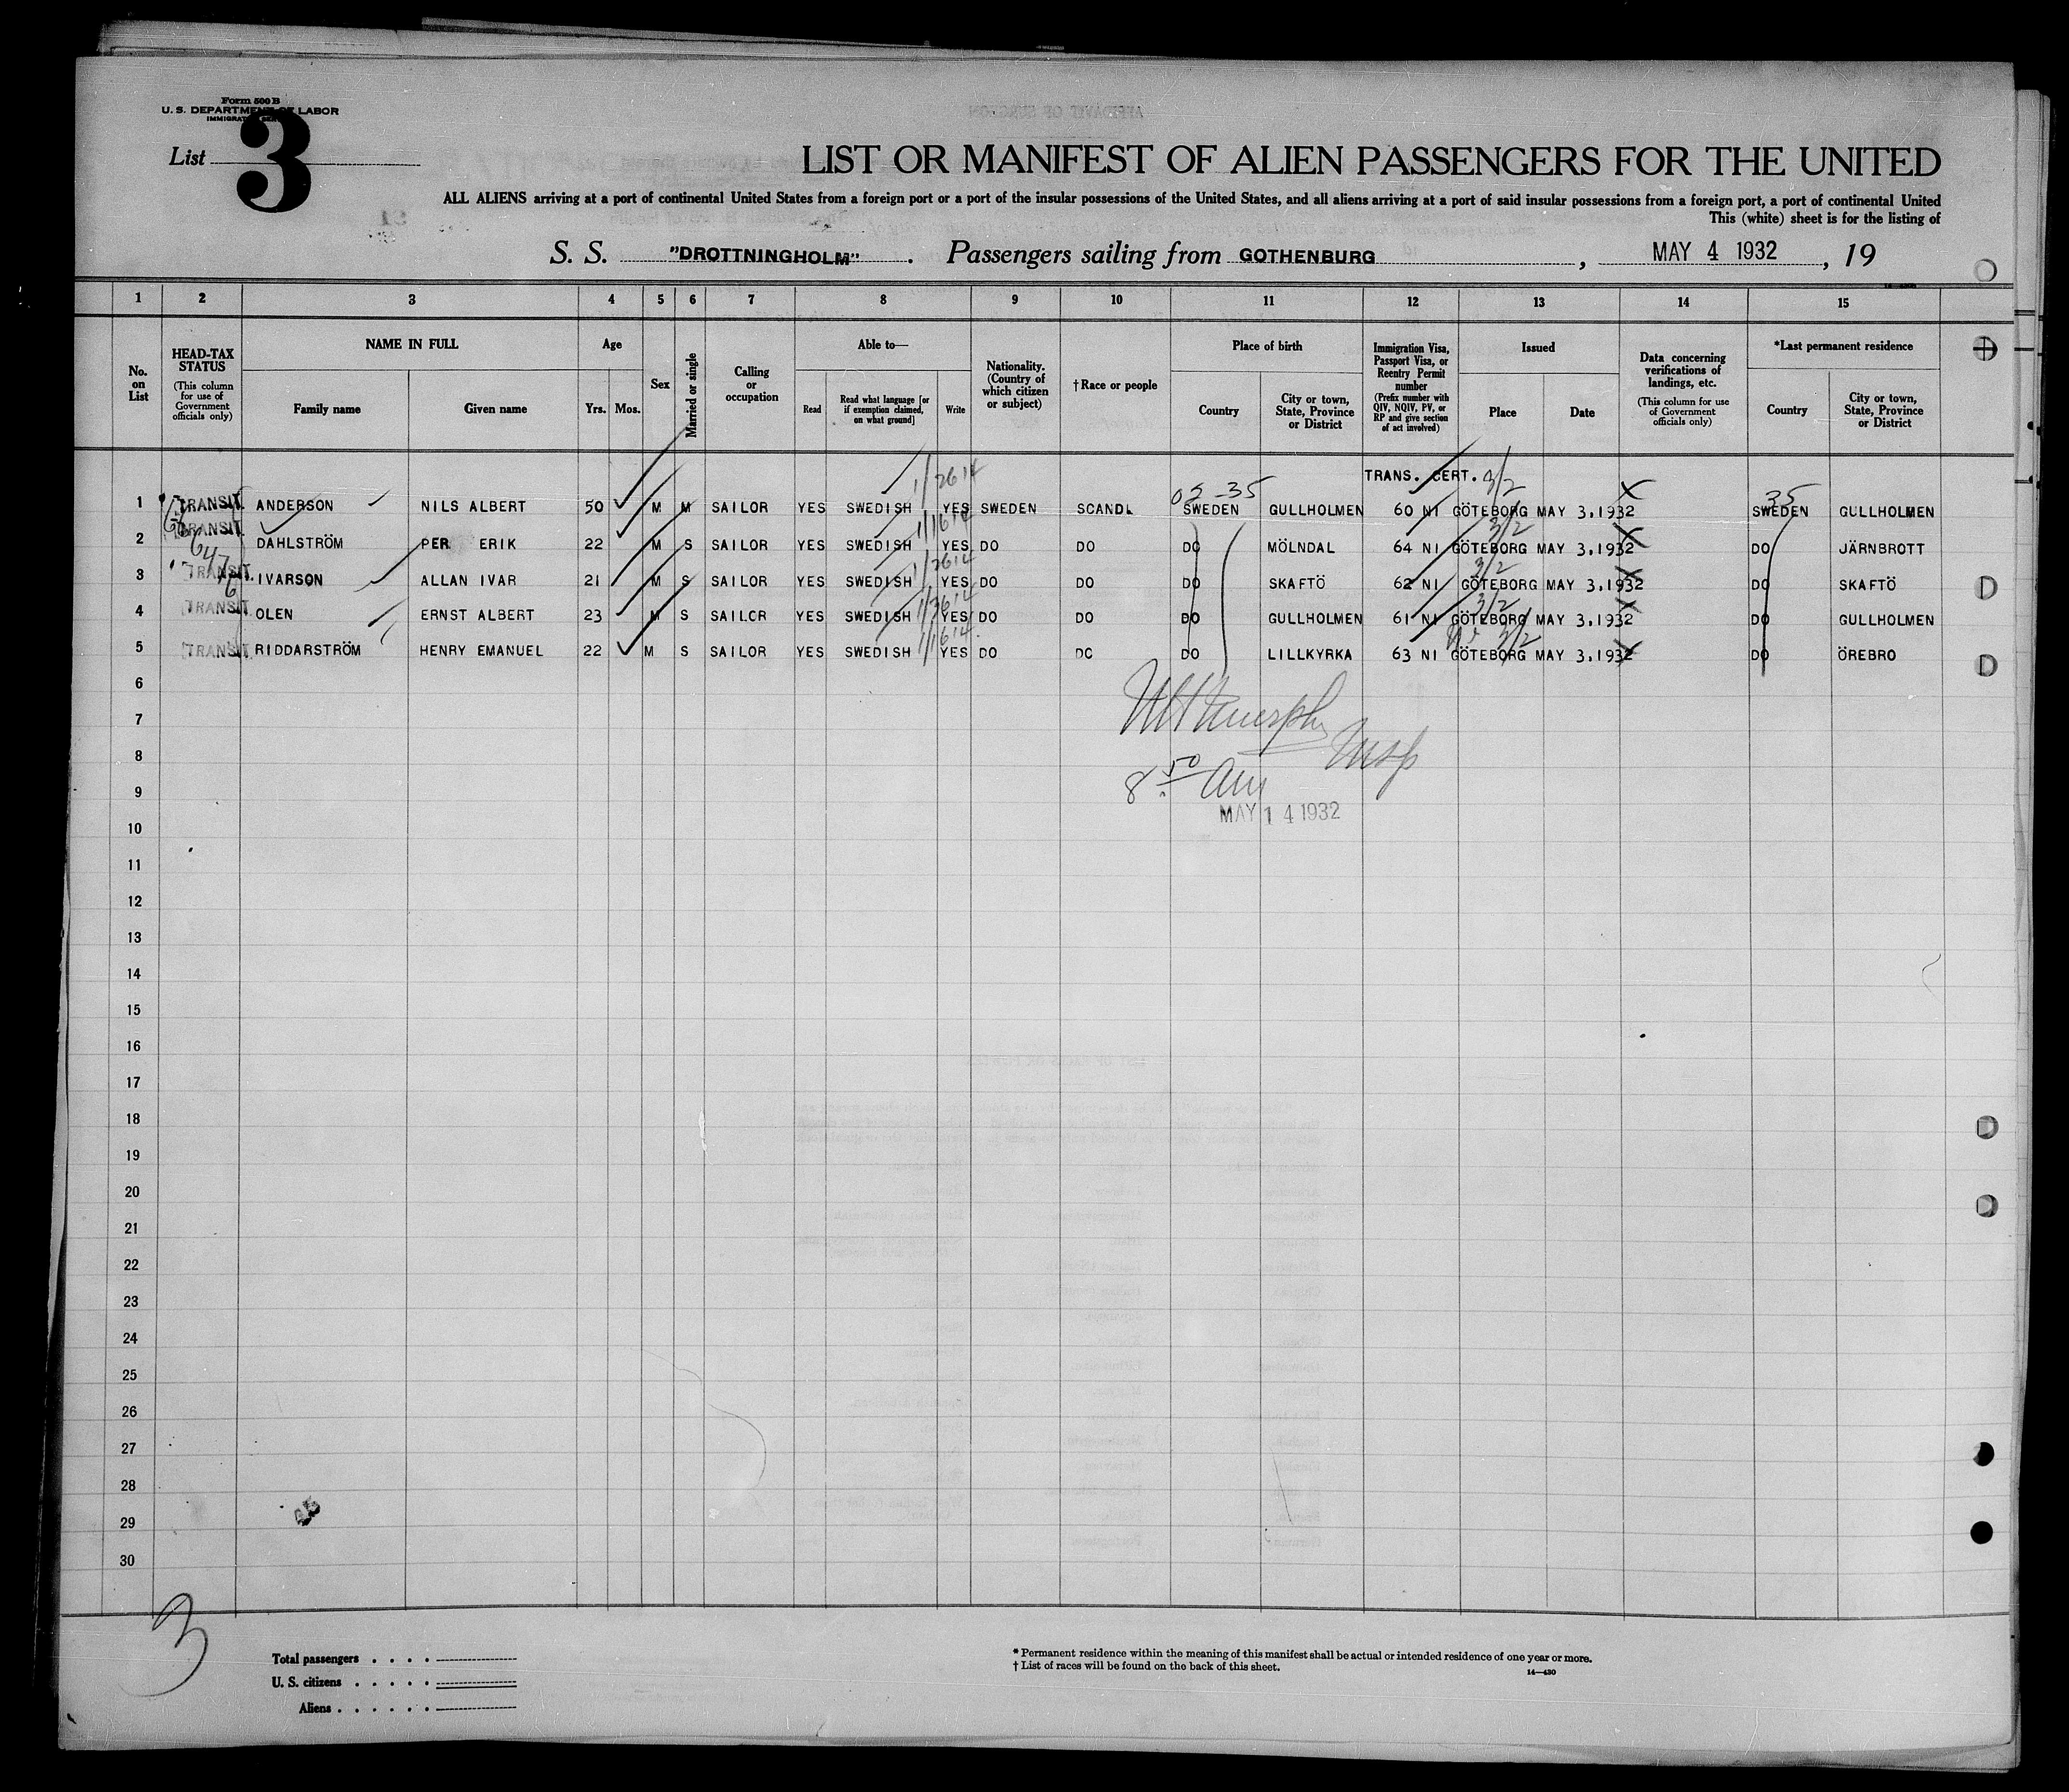 Form 500 B
U. S. DEPARTMENT OF LABOR
List 3
LIST OR MANIFEST OF ALIEN PASSENGERS FOR THE UNITED
ALL ALIENS arriving at a port of continental United States from a foreign port or a port of the insular possessions of the United States, and all aliens arriving at a port of said insular possessions from a foreign port, a port of continental United
This (white) sheet is for the listing of
S. S. "DROTTNINGHOLM". Passengers sailing from GOTHENBURG, MAY 4 1932, 19
1 2 3 4 5 6 7 8 9 10 11 12 13 14 15
No. on List
HEAD-TAX STATUS (This column for use of Government officials only)
NAME IN FULL
Family name Given name
Age
Yrs. Mos.
Sex
Married or single
Calling or occupation
Able to—
Read Read what language [or if exemption claimed, on what ground] Write
Nationality. (Country of which citizen or subject)
†Race or people
Place of birth
Country City or town, State, Province or District
Immigration Visa, Passport Visa, or Reentry Permit number (Prefix number with QIV, NQIV, PV, or RP and give section of act involved)
Issued
Place Date
Data concerning verifications of landings, etc. (This column for use of Government officials only)
*Last permanent residence
Country City or town, State, Province or District
TRANS. CERT. 3/2
1/2614
02-35 35
1 TRANSIT ANDERSON NILS ALBERT 50 M M SAILOR YES SWEDISH YES SWEDEN SCAND. SWEDEN GULLHOLMEN 60 NI GÖTEBORG MAY 3.1932 SWEDEN GULLHOLMEN
1/1614 3/2
2 TRANSIT DAHLSTRÖM PER ERIK 22 M S SAILOR YES SWEDISH YES DO DO DO MÖLNDAL 64 NI GÖTEBORG MAY 3.1932 DO JÄRNBROTT
1/2614 3/2
3 TRANSIT IVARSON ALLAN IVAR 21 M S SAILOR YES SWEDISH YES DO DO DO SKAFTÖ 62 NI GÖTEBORG MAY 3.1932 DO SKAFTÖ
3/2
4 TRANSIT OLEN ERNST ALBERT 23 M S SAILOR YES SWEDISH YES DO DO DO GULLHOLMEN 61 NI GÖTEBORG MAY 3.1932 DO GULLHOLMEN
1/1614 3/2
5 TRANSIT RIDDARSTRÖM HENRY EMANUEL 22 M S SAILOR YES SWEDISH YES DO DO DO LILLKYRKA 63 NI GÖTEBORG MAY 3.1932 DO ÖREBRO
6
7
Murphy
Insp
8
8 50 am
9
MAY 14 1932
10
11
12
13
14
15
16
17
18
19
20
21
22
23
24
25
26
27
28
29
30
3
Total passengers . . . .
U. S. citizens . . . . .
Aliens . . . . . .
* Permanent residence within the meaning of this manifest shall be actual or intended residence of one year or more.
† List of races will be found on the back of this sheet.
14—430